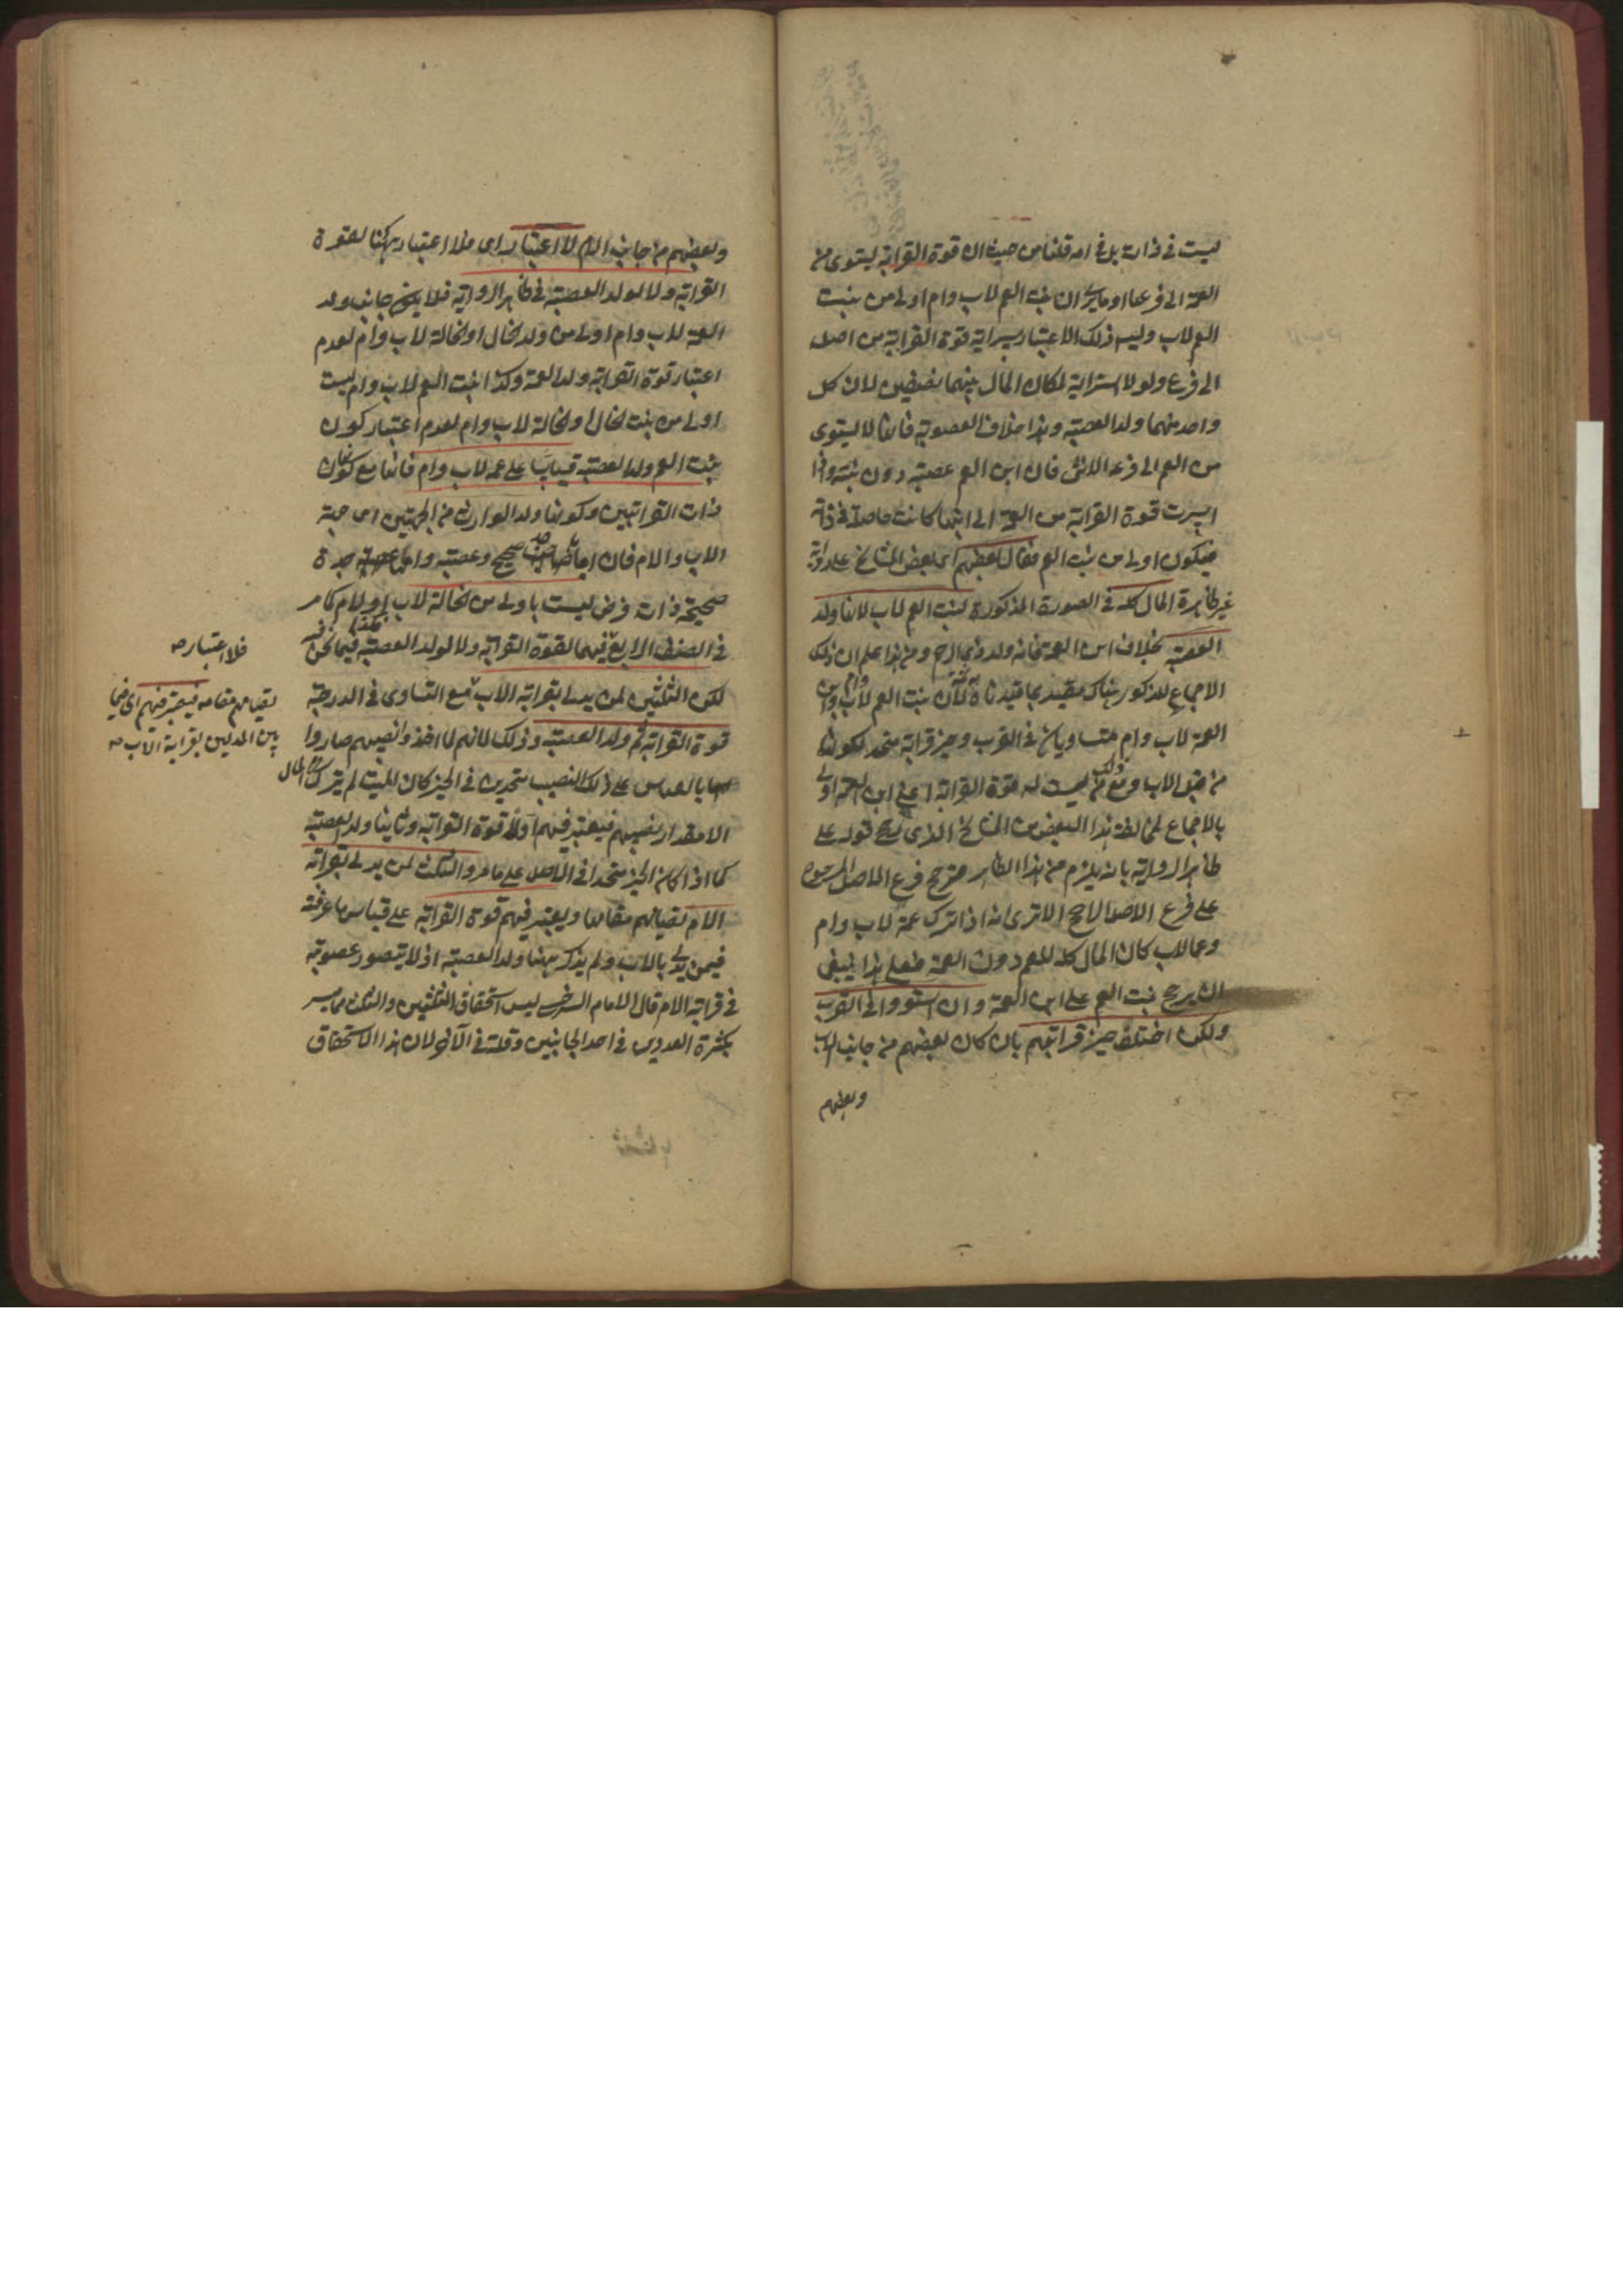 ليست في ذاته بل في امه قلنا من حيث ان قوة القرابة ليستوى من
العمة الى فرعها او ما يرى ان بنت العم لاب وام اولى من بنت
العم لاب وليس ذلك الا باعتبار سراية قوة القرابة من اصل
الى فرع ولولا استراية لكان المال بينهما نصفين لان كل
واحد منهما ولد العصبة وهذا خلاف العصوبة فانها لا ليستوى
من العم الى فرعه الانثى فان ابن العم عصبة دون بنته واذا
اسرت قوة القرابة من العمة الى ابنها كانت حاصلة في ذاته
فيكون اولى من بنت العم وقال بعضهم اى بعض المشايخ على رواية
غير ظاهرة المال كله في الصورة المذكورة لبنت العم لاب لانها ولد
العصبة بخلاف ابن العمة فانه ولد ذى الرحم ومن هذا علم ان ذلك
الاجماع المذكور هناك مقيد بما قيدناه لان بنت العم لاب وام وابن
العمة لاب وام متساويان في القرب وحيز قرابة متحد لكونها
من قبل الاب ومع ذلك ليست له قوة القرابة اعنى ابن العمة اولى
بالاجماع لمخالفة هذا البعض من المشايخ الذى رجح قوله على
ظاهر الرواية بانه يلزم من هذا الظاهر ترجيح فرع الاصل المرجوح
على فرع الاصل الراجح الا ترى انه اذا ترك عمة لاب وام
وعما لاب كان المال كله للعم دون العمة فعلى هذا ينبغى
ان يرجح بنت العم على ابن العمة وان استووا في القرب
ولكن اختلف حيز قرابتهم بان كان بعضهم من جانب الاب
وبعضهم
وبعضهم من جانب الام لا اعتبار اى فلا اعتبار ههنا لقوة
القرابة ولا لولد العصبة في ظاهر الرواية فلا يرجح جانب ولد
العمة لاب وام اولى من ولد الخال او الخالة لاب وام لعدم
اعتبار قوة القرابة ولد العمة وكذا بنت العم لاب وام ليست
اولى من بنت الخال او الخالة لاب وام لعدم اعتبار كون
بنت العم ولد العصبة قياسا على عمة لاب وام فانها مع كونها
ذات القرابتين وكونها ولد الوارث من الجهتين اى جهة
الاب والام فان اباها جد صحيح وعصبة وامها جدة
صحيحة ذات فرض ليست باولى من الخالة لاب او لام كما مر
في الصنف الرابع فيهما لقوة القرابة ولا لولد العصبة فيما نحن فيه
لكن الثلثين لمن يدلى بقرابة الاب مع التساوى في الدرجة
قوة القرابة ثم ولد العصبة وذلك لانهم لما اخذوا نصيبهم صاروا
على ذلك النصيب متحدين في الحيز كان الميت لم يترك من المال
الا مقدار نصيبهم فيعتبر فيهم اولا قوة القرابة وثانيا ولد العصبة
كما اذا كان الحيز متحدا في الاصل على ما مر والثلث لمن يدلى بقرابة
الام لقيامهم مقامها ويعتبر فيهم قوة القرابة على قياس ما عرفته
فيمن يدلى بالاب ولم يذكر ههنا ولد العصبة اذ لا يتصور عصوبة
في قرابة الام قال الامام السرخسى ليس استحقاق الثلثين والثلث مما يتغير
بكثرة العدد من في احد الجانبين وقلته في الآخر لان هذا الاستحقاق
فلا اعتبار صح
لقيامهم مقامه فيعتبر فيهم اى فيما
بين المدلين بقرابة الاب صح